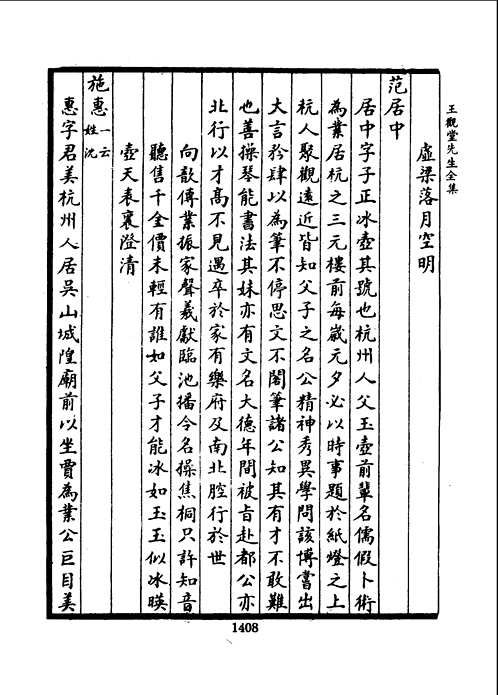 王觀堂先生全集
虛梁落月空明
范居中
居中字子正冰壺其號也杭州人父玉壺前輩名儒假卜術
為業居杭之三元樓前每歲元夕必以時事題於紙燈之上
杭人聚觀遠近皆知父子之名公精神秀異學問該博嘗出
大言矜肆以為筆不停思文不閣筆諸公知其有才不敢難
也善操琴能書法其妹亦有文名大德年間被旨赴都公亦
北行以才高不見遇卒於家有樂府及南北腔行於世
向歆傳業振家聲羲獻臨池播令名操焦桐只許知音
聽售千金價未輕有誰如父子才能冰如玉玉似冰暎
壺天表裏澄清
施惠一云姓沈
惠字君美杭州人居吳山城隍廟前以坐賈為業公巨目美
1408